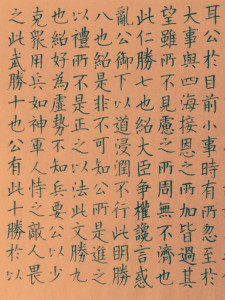 耳公於目前小事時有所忽至於
大事與四海接恩之所加皆過其
望雖所不見慮之所周無不濟也
此仁勝七也紹大臣爭權讒言惑
亂公御下以道浸潤不行此明勝
八也紹是非不可知公所是進之
以禮所不是正之以法此文勝九
也紹好為虛勢不知兵要公以少
克衆用兵如神軍人恃之敵人畏
之此武勝十也公有此十勝於以